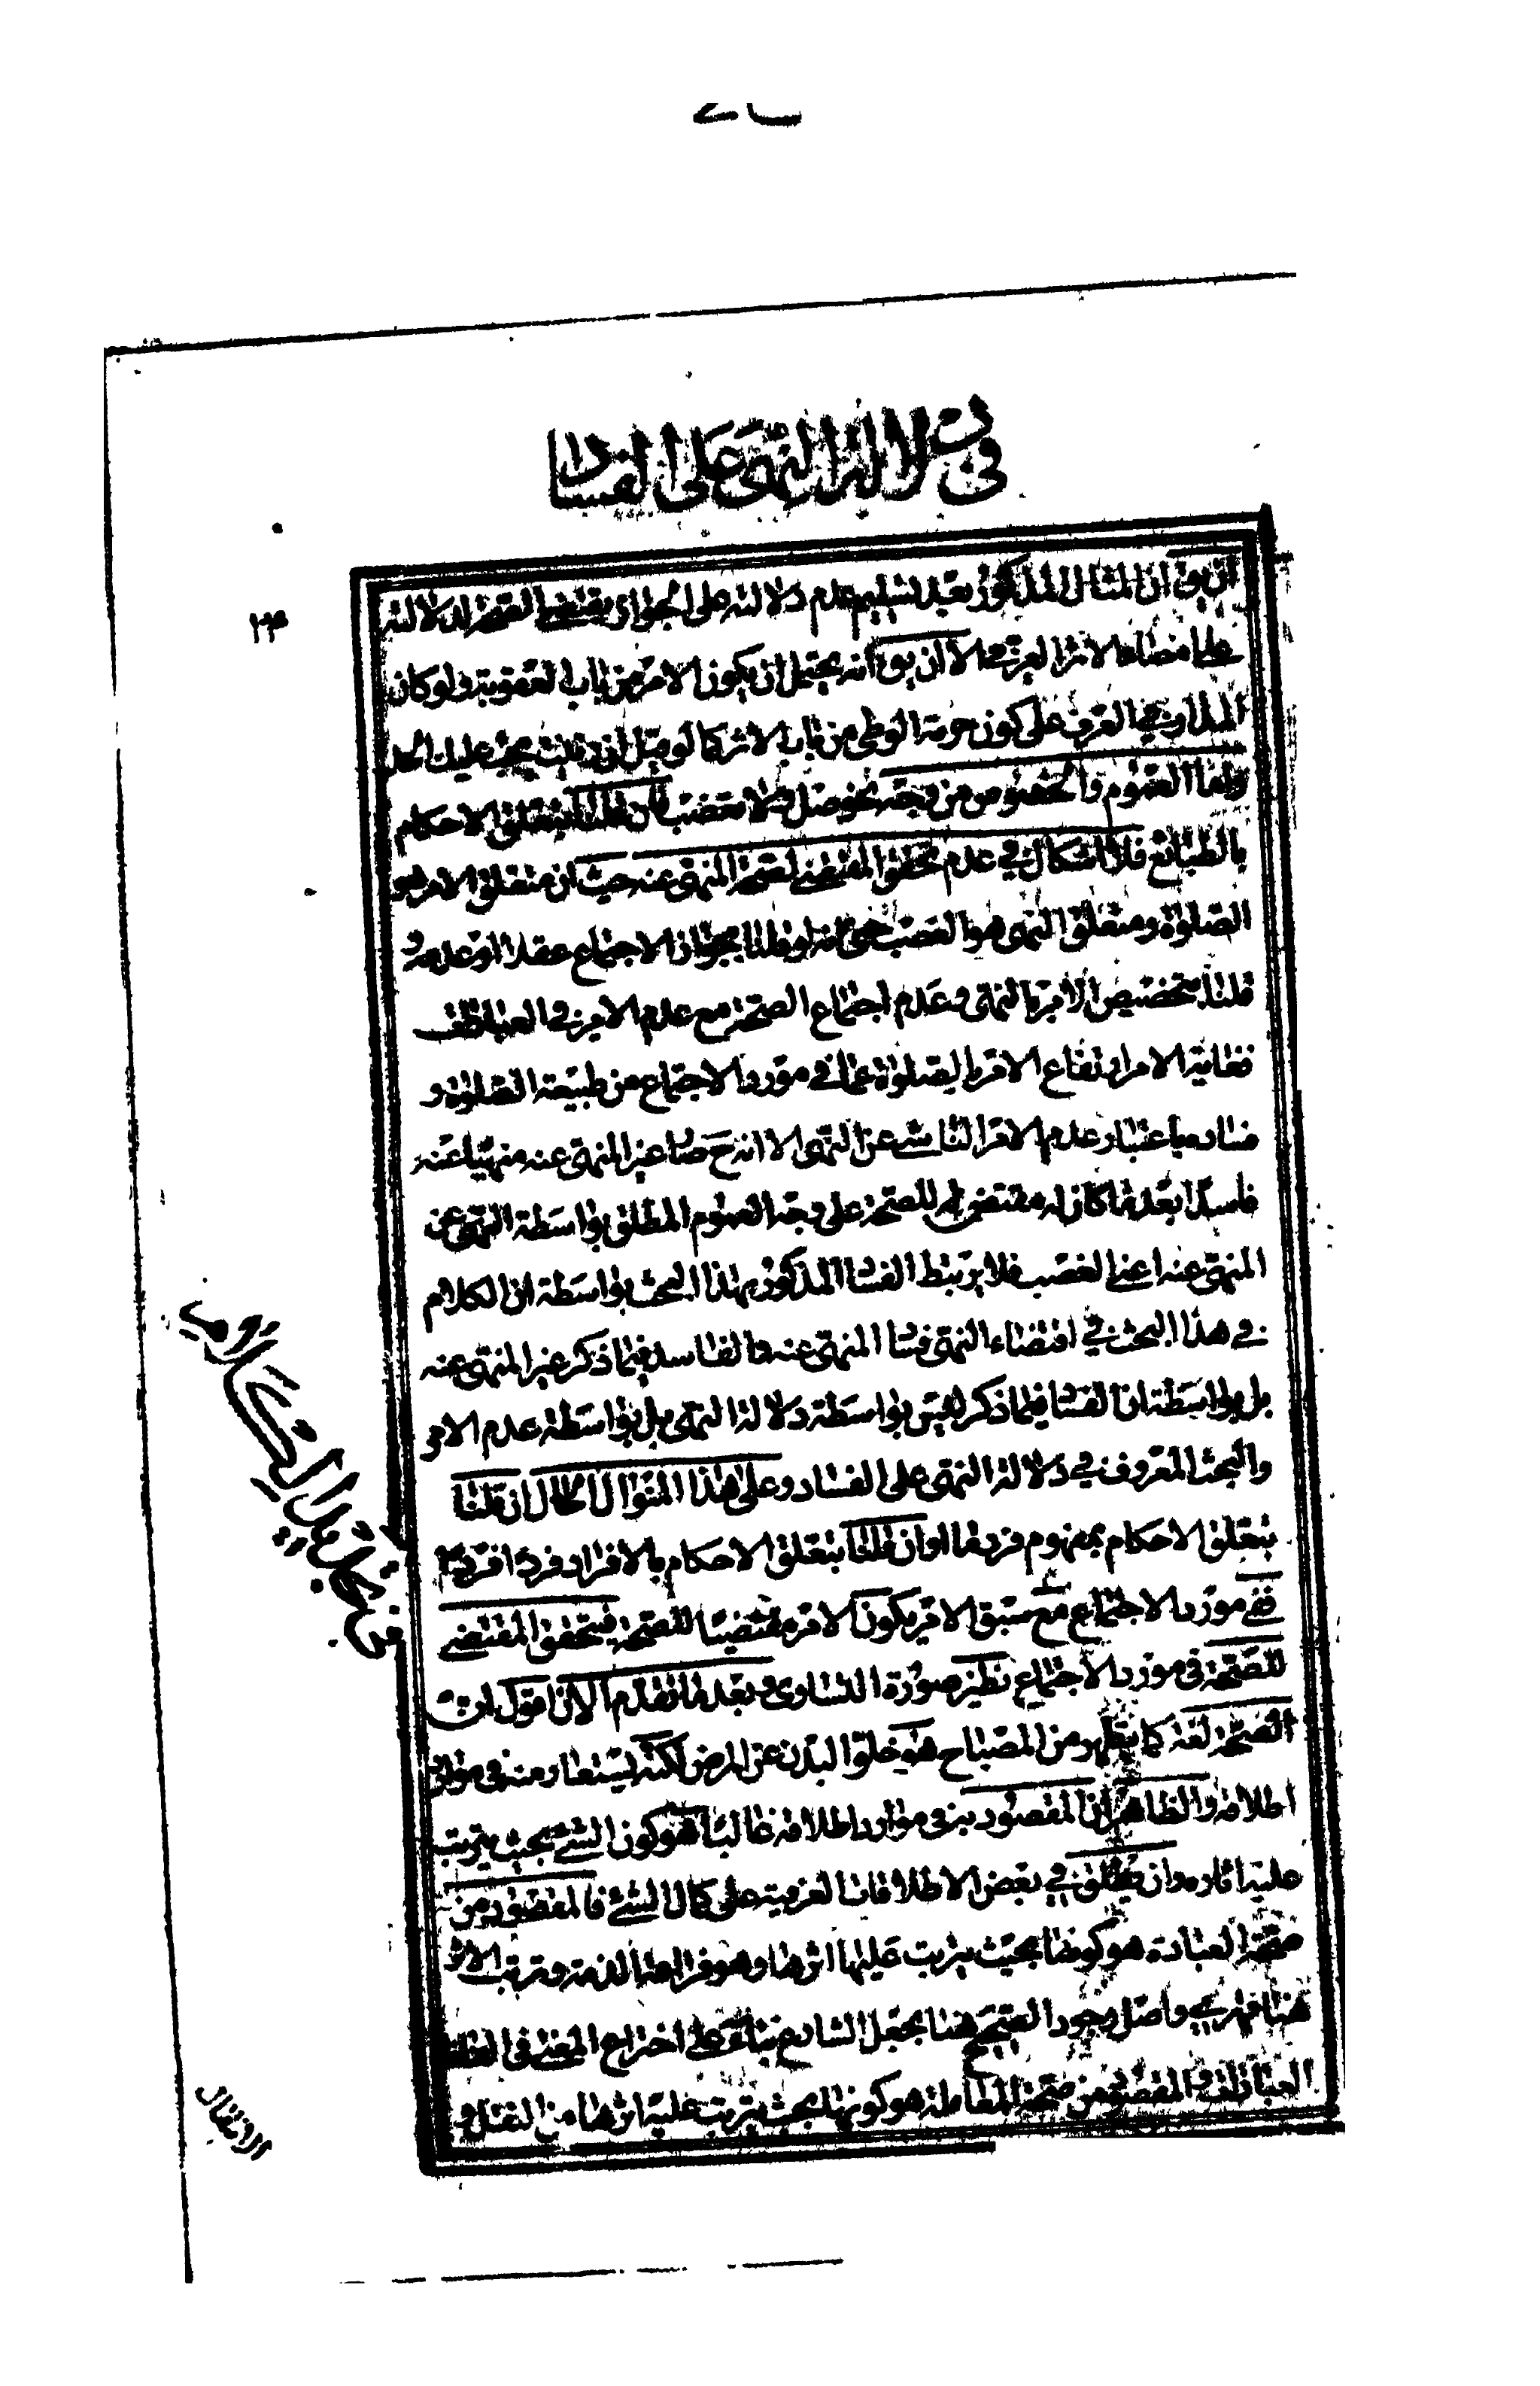 في دلالة النهى على الفساد
۲۴
ان يق ان المثال المذكور بعد تسليم عدم دلالته على الجواز يقتضي الصحة لدلالته
على امضاء الاثر العرفى الا ان يق انه يحتمل ان يكون الامر من باب العقوبة ولو كان
المدار فى العرف على كون حرمة الوطى من باب الاثر كما لو قيل ان زنيت يجب عليك الحد
واما العموم والخصوص من وجه نحو صل ولا تغصب فان قلنا بتعلق الاحكام
بالطبايع فلا اشكال في عدم تحقق المقتضى لصحة المنهى عنه حيث ان متعلق الامر هو
الصلوة ومتعلق النهى هو الغصب حتى انه لو قلنا بجواز الاجتماع عقلا او عدمه و
قلنا بتخصيص الامر بالنهى وعدم اجتماع الصحة مع عدم الامر في العبادات
فغاية الامر ارتفاع الامر بالصلوة عما في مورد الاجتماع من طبيعة الصلوة و
فساده باعتبار عدم الامر الناشى عن النهى الا انه ح صار غير المنهى عنه منهيا عنه
فاسدا بعد ما كان له مقتضى للصحة على وجه العموم المطلق بواسطة النهى عن
المنهى عنه اعنى الغصب فلا يرتبط الفساد المذكور بهذا البحث بواسطة ان الكلام
في هذا البحث في اقتضاء النهى فساد المنهى عنه والفاسد فيما ذكر غير المنهى عنه
بل بواسطة ان الفساد فيما ذكر ليس بواسطة دلالة النهى بل بواسطة عدم الامر
والبحث المعروف في دلالة النهى على الفساد وعلى هذا المنوال الحال ان قلنا
بتعلق الاحكام بمفهوم فرد ما او ان قلنا بتعلق الاحكام بالافراد فردا فردا
ففى مورد الاجتماع مع سبق الامر يكون الامر مقتضيا للصحة فيتحقق المقتضى
للصحة فى مورد الاجتماع نظير صورة التساوى وبعد ما تقدم الان اقول ان
الصحة لغة كما يظهر من المصباح هو خلو البدن عن المرض لكنه يستعار منه فى موارد
اطلاقه والظاهر ان المقصود به فى موارد اطلاقه غالبا هو كون الشىء بحيث يترتب
عليه اثاره وان يطلق في بعض الاطلاقات العرفية على كمال الشىء فالمقصود من
صحة العبادة هو كونها بحيث يترتب عليها اثرها وهو فراغ الذمة وترتب الاثر
هنا قهرى واصل وجود الصحيح هنا بجعل الشارع بناء على اختراع المعنى فى الفاظ
العبادات والمقصود من صحة المعاملة هو كونها بحيث يترتب عليه اثرها من النقل و
الانتقال